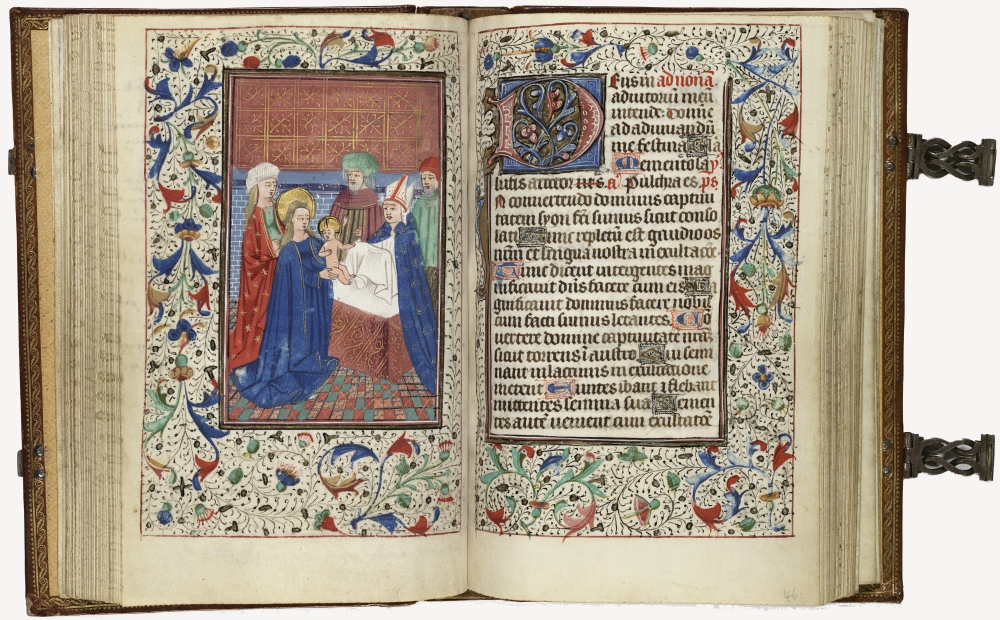 Deus in ad nonā
adiutoriū meū
intende. Domīe
ad adiuuandū
me festina Gla
Memento
lutis auctor Pulchra es. ps
In conuertendo dominus captiui
tatem syon fcī sumus sicut conso
lati Tunc repletū est gaudio os
nrm et lingua nostra in exultacōe
Tunc dicent inter gentes mag
nificauit dn̄s facere cum eis Ma
gnificauit dominus facere nobis
cum facti sumus letantes. Co
uertere domine captiuitatē nrām
sicut torrens ī austro Qui semi
nant in lacrimis in exultatione
metent Euntes ibant ⁊ flebant
mittentes semina sua Uenien
tes autē uenient cum exultatōe
46